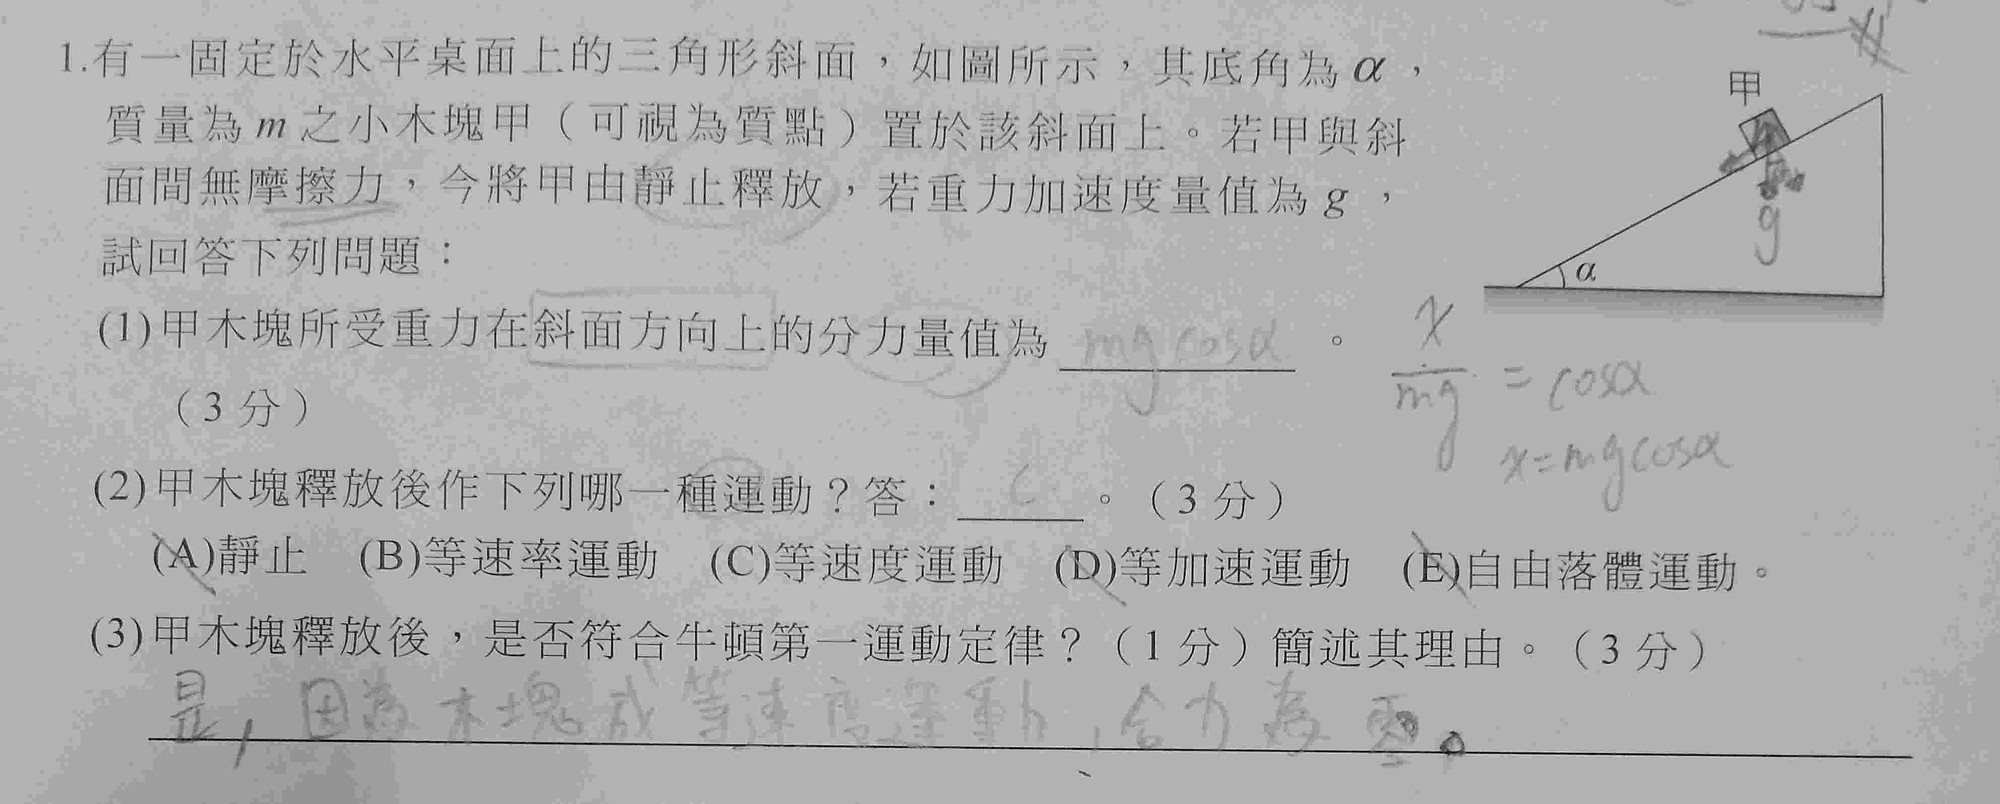 1.有一固定於水平桌面上的三角形斜面，如圖所示，其底角為α，
質量為m之小木塊甲（可視為質點）置於該斜面上。若甲與斜
面間無摩擦力，今將甲由靜止釋放，若重力加速度量值為g，
試回答下列問題：
甲
g
α
(1)甲木塊所受重力在斜面方向上的分力量值為 mg cosα 。
（3分）
x/mg = cosα
x=mgcosα
(2)甲木塊釋放後作下列哪一種運動？答： C 。（3分）
(A)靜止 (B)等速率運動 (C)等速度運動 (D)等加速運動 (E)自由落體運動。
(3)甲木塊釋放後，是否符合牛頓第一運動定律？（1分）簡述其理由。（3分）
是，因為木塊成等速度運動，合力為零。